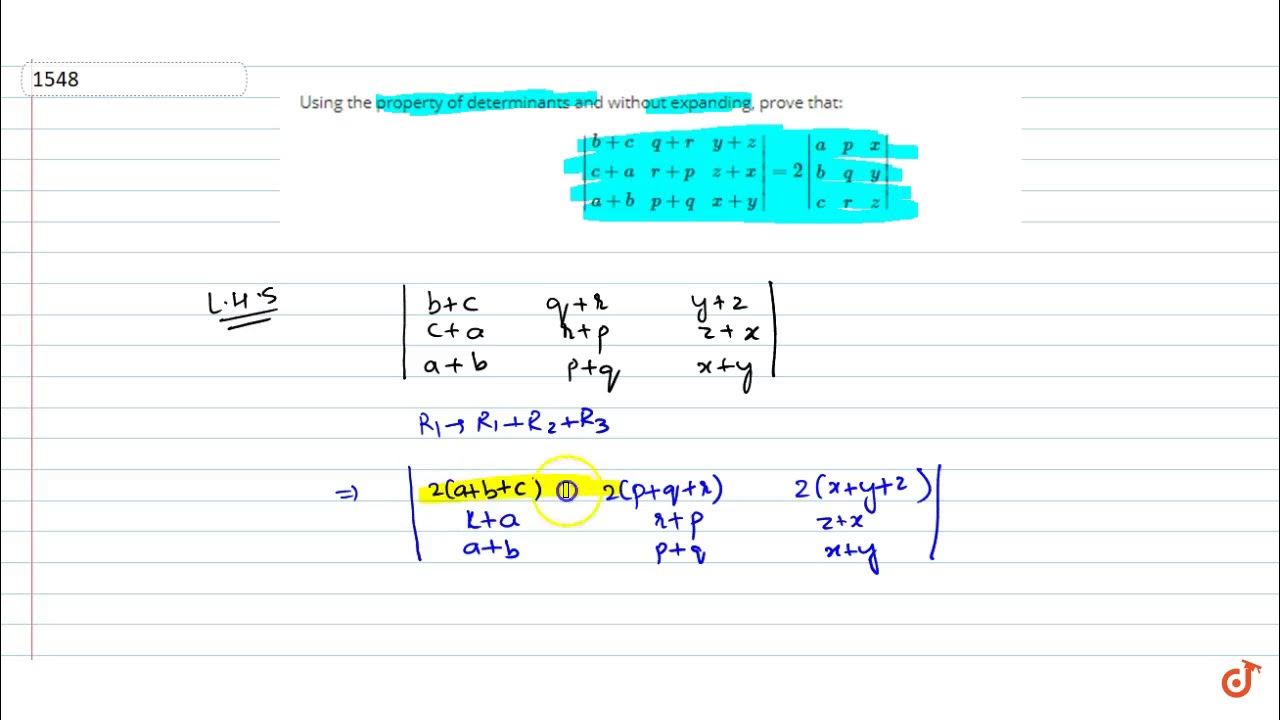 1548
Using the property of determinants and without expanding, prove that:
| b + c   q + r   y + z |       | a   p   x |
| c + a   r + p   z + x | = 2 | b   q   y |
| a + b   p + q   x + y |       | c   r   z |
L.H.S
| b+c   q+r   y+z |
| c+a   r+p   z+x |
| a+b   p+q   x+y |
R1→ R1+R2+R3
⇒ | 2(a+b+c)   2(p+q+r)   2(x+y+z) |
| c+a   r+p   z+x |
| a+b   p+q   x+y |